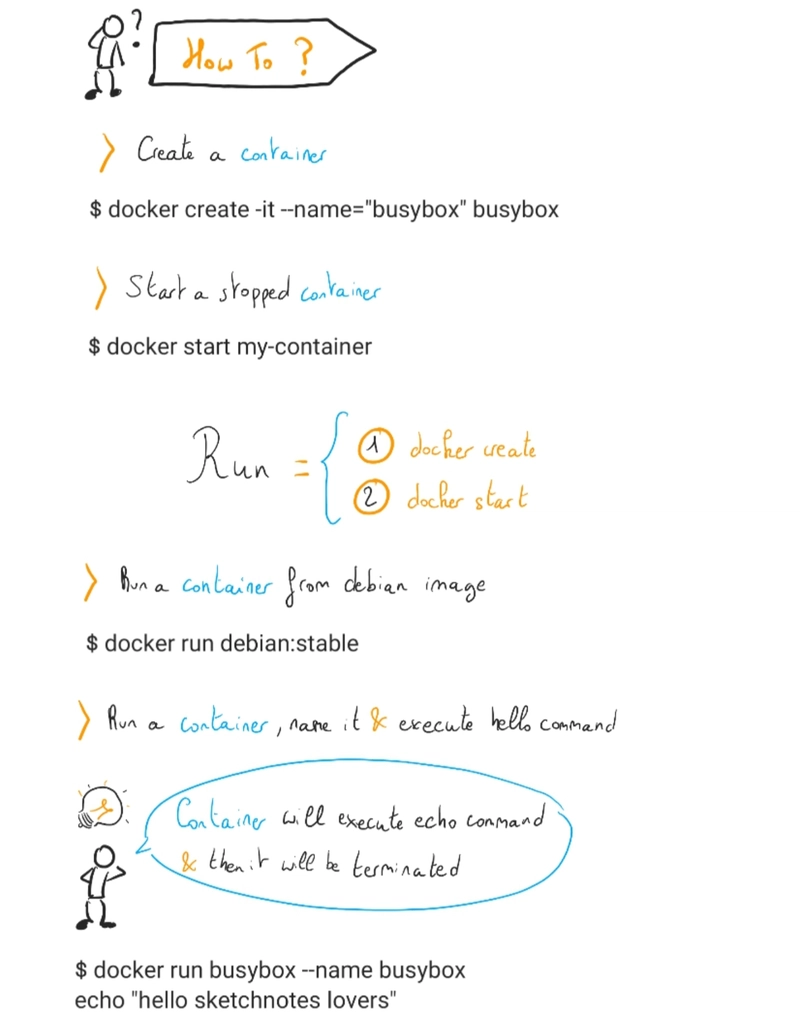 ?
How To ?
> Create a container
$ docker create -it --name="busybox" busybox
> Start a stopped container
$ docker start my-container
Run = { 1 docker create
2 docker start
> Run a container from debian image
$ docker run debian:stable
> Run a container, name it & execute hello command
Container will execute echo command
& then it will be terminated
$ docker run busybox --name busybox
echo "hello sketchnotes lovers"